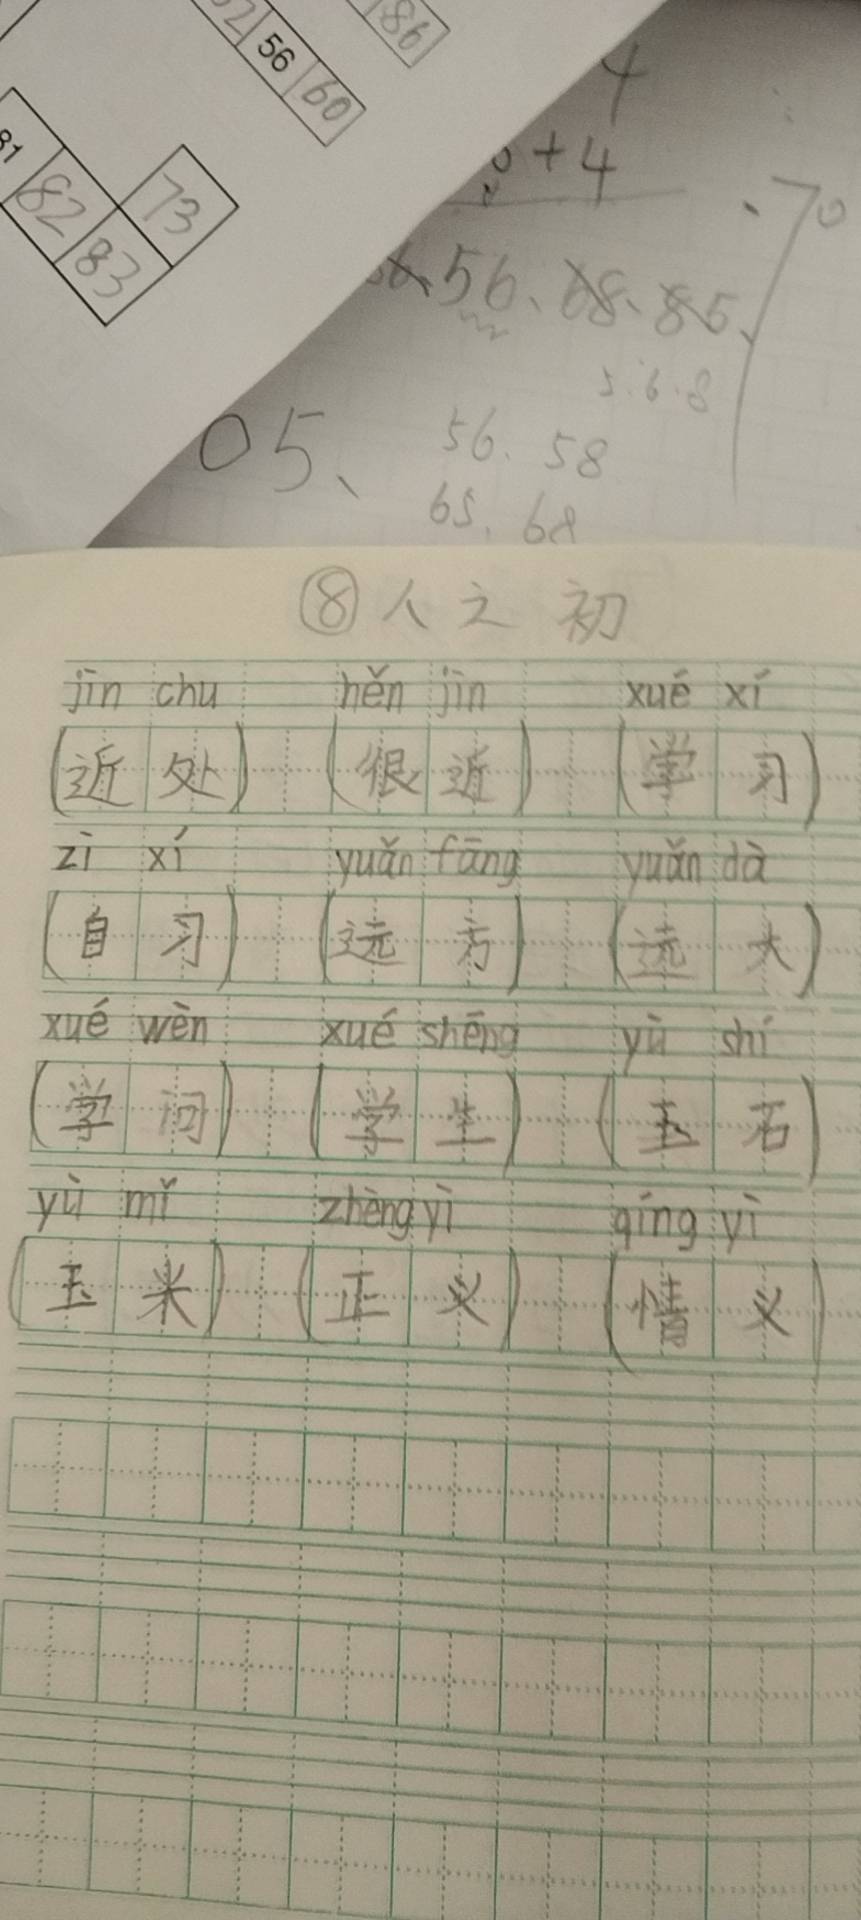 56 60
86
81
82 73
83
4
+4
70
56、68、85、
5.6.8
05、
56、58
65、68
⑧人之初
jìn chu hěn jìn xué xí
(近处) (很近) (学习)
zì xí yuǎn fāng yuǎn dà
(自习) (远方) (远大)
xué wèn xué shēng yù shí
(学问) (学生) (玉石)
yù mǐ zhèng yì qíng yì
(玉米) (正义) (情义)